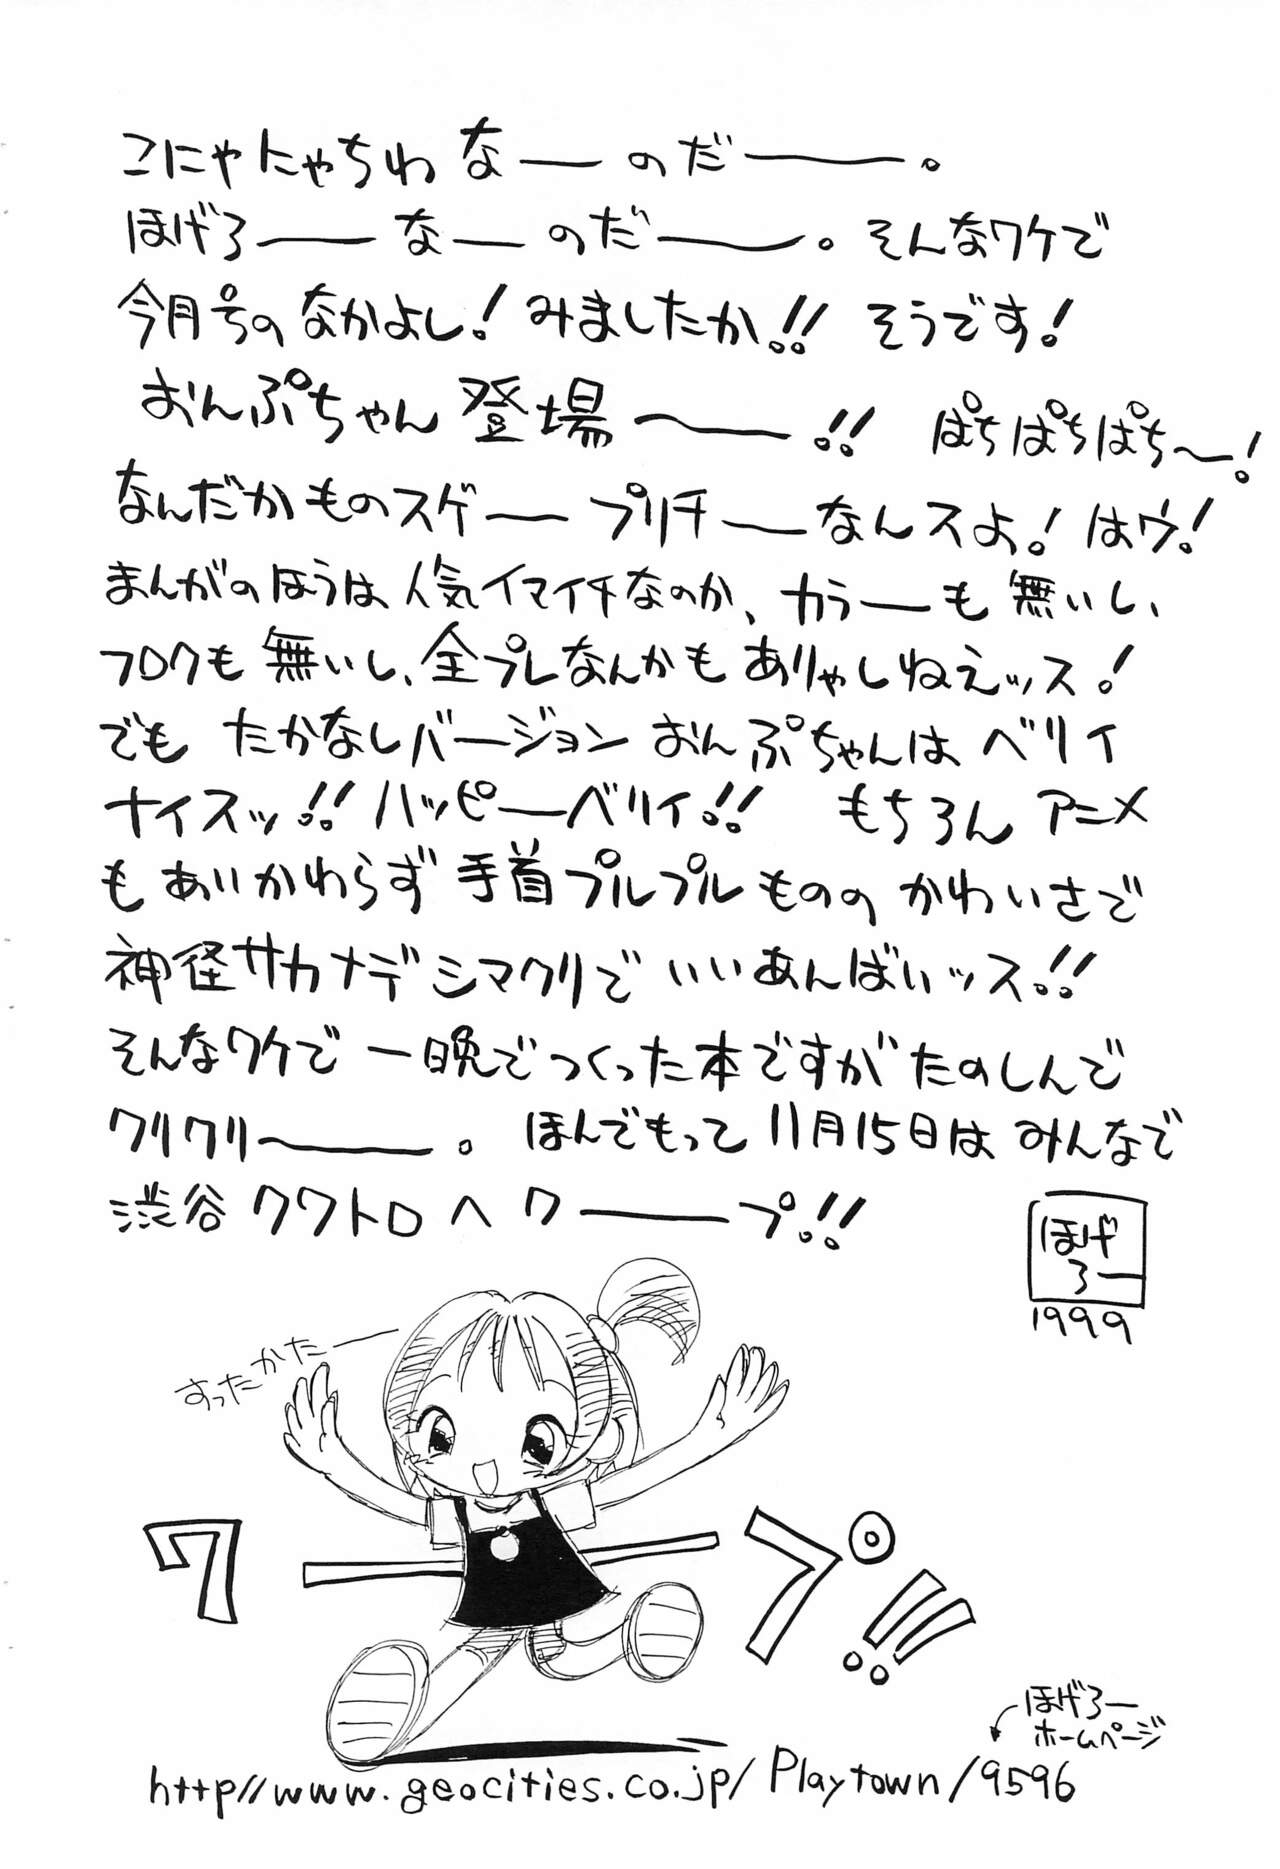 こにゃにゃちわ なーのだー。
ほげろーなーのだー。そんなワケで
今月号の なかよし! みましたか!! そうです!
おんぷちゃん 登場ー!! ぱちぱちぱち〜!
なんだか ものスゲー プリチーなんスよ! はウ!
まんがのほうは 人気イマイチなのか、カラーも 無いし、
フロクも 無いし、全プレなんかも ありゃしねえッス!
でも たかなしバージョン おんぷちゃんは ベリイ
ナイスッ!! ハッピーベリィ!! もちろん アニメ
も あいかわらず 手首プルプルものの かわいさで
神経サカナデシマクリで いいあんばいッス!!
そんなワケで 一晩でつくった本ですが たのしんで
クリクリー。ほんでもって 11月15日は みんなで
渋谷 クワトロ へ ワープ!!
ほげ
ろー
1999
すったかたー
ワープ!!!
ほげろー
ホームページ
http//www.geocities.co.jp/Playtown/9596